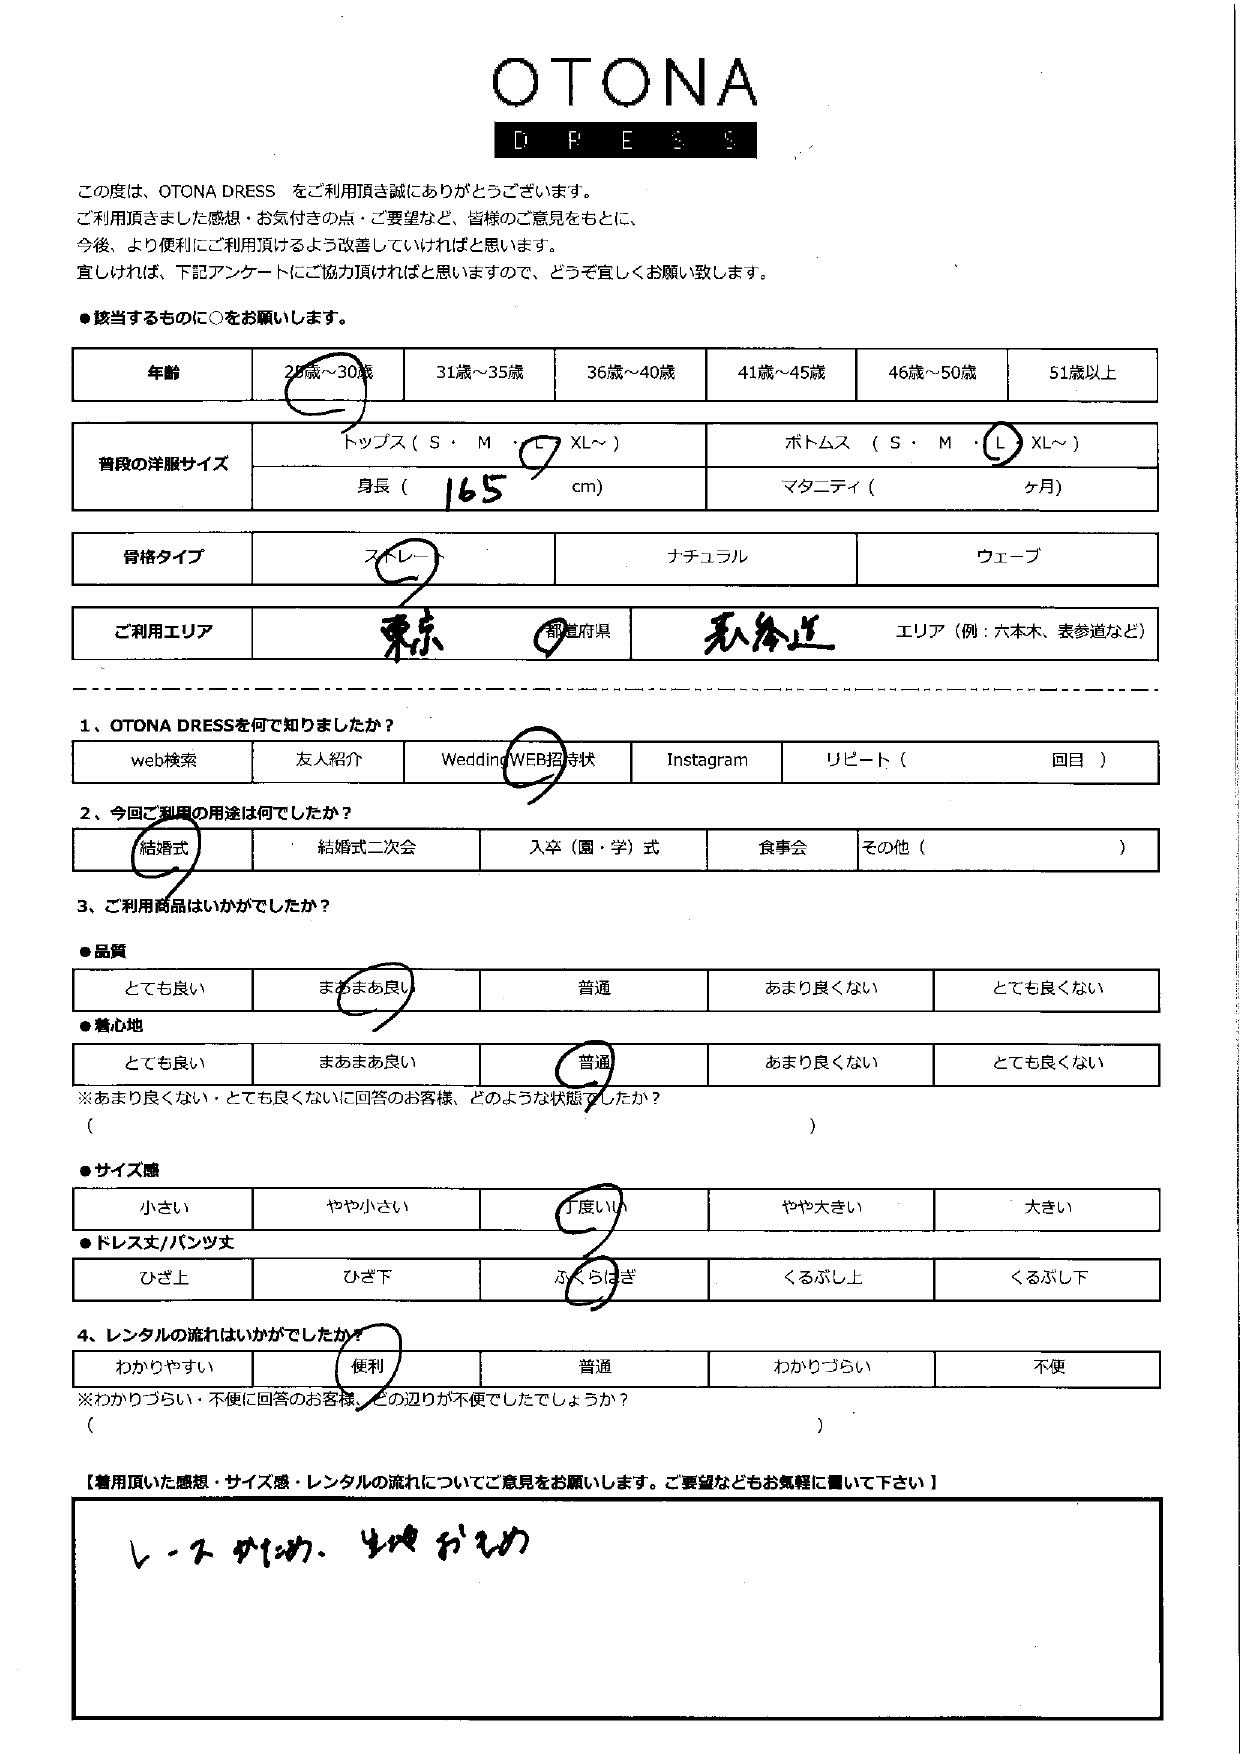 OTONA
DRESS
この度は、OTONA DRESS　をご利用頂き誠にありがとうございます。
ご利用頂きました感想・お気付きの点・ご要望など、皆様のご意見をもとに、
今後、より便利にご利用頂けるよう改善していければと思います。
宜しければ、下記アンケートにご協力頂ければと思いますので、どうぞ宜しくお願い致します。
●該当するものに○をお願いします。
年齢 25歳～30歳 31歳～35歳 36歳～40歳 41歳～45歳 46歳～50歳 51歳以上
普段の洋服サイズ トップス ( S ・ M ・ L ・ XL～ ) ボトムス ( S ・ M ・ L ・ XL～ )
身長 ( 165 cm) マタニティ ( ヶ月)
骨格タイプ ストレート ナチュラル ウェーブ
ご利用エリア 東京 都道府県 表参道 エリア（例：六本木、表参道など）
1、OTONA DRESSを何で知りましたか？
web検索 友人紹介 WeddingWEB招待状 Instagram リピート（ 回目 ）
2、今回ご利用の用途は何でしたか？
結婚式 結婚式二次会 入卒（園・学）式 食事会 その他（ ）
3、ご利用商品はいかがでしたか？
●品質
とても良い まあまあ良い 普通 あまり良くない とても良くない
●着心地
とても良い まあまあ良い 普通 あまり良くない とても良くない
※あまり良くない・とても良くないに回答のお客様、どのような状態でしたか？
（ ）
●サイズ感
小さい やや小さい 丁度いい やや大きい 大きい
●ドレス丈/パンツ丈
ひざ上 ひざ下 ふくらはぎ くるぶし上 くるぶし下
4、レンタルの流れはいかがでしたか？
わかりやすい 便利 普通 わかりづらい 不便
※わかりづらい・不便に回答のお客様、どの辺りが不便でしたでしょうか？
（ ）
【着用頂いた感想・サイズ感・レンタルの流れについてご意見をお願いします。ご要望などもお気軽に書いて下さい】
レースかため、生地おもめ